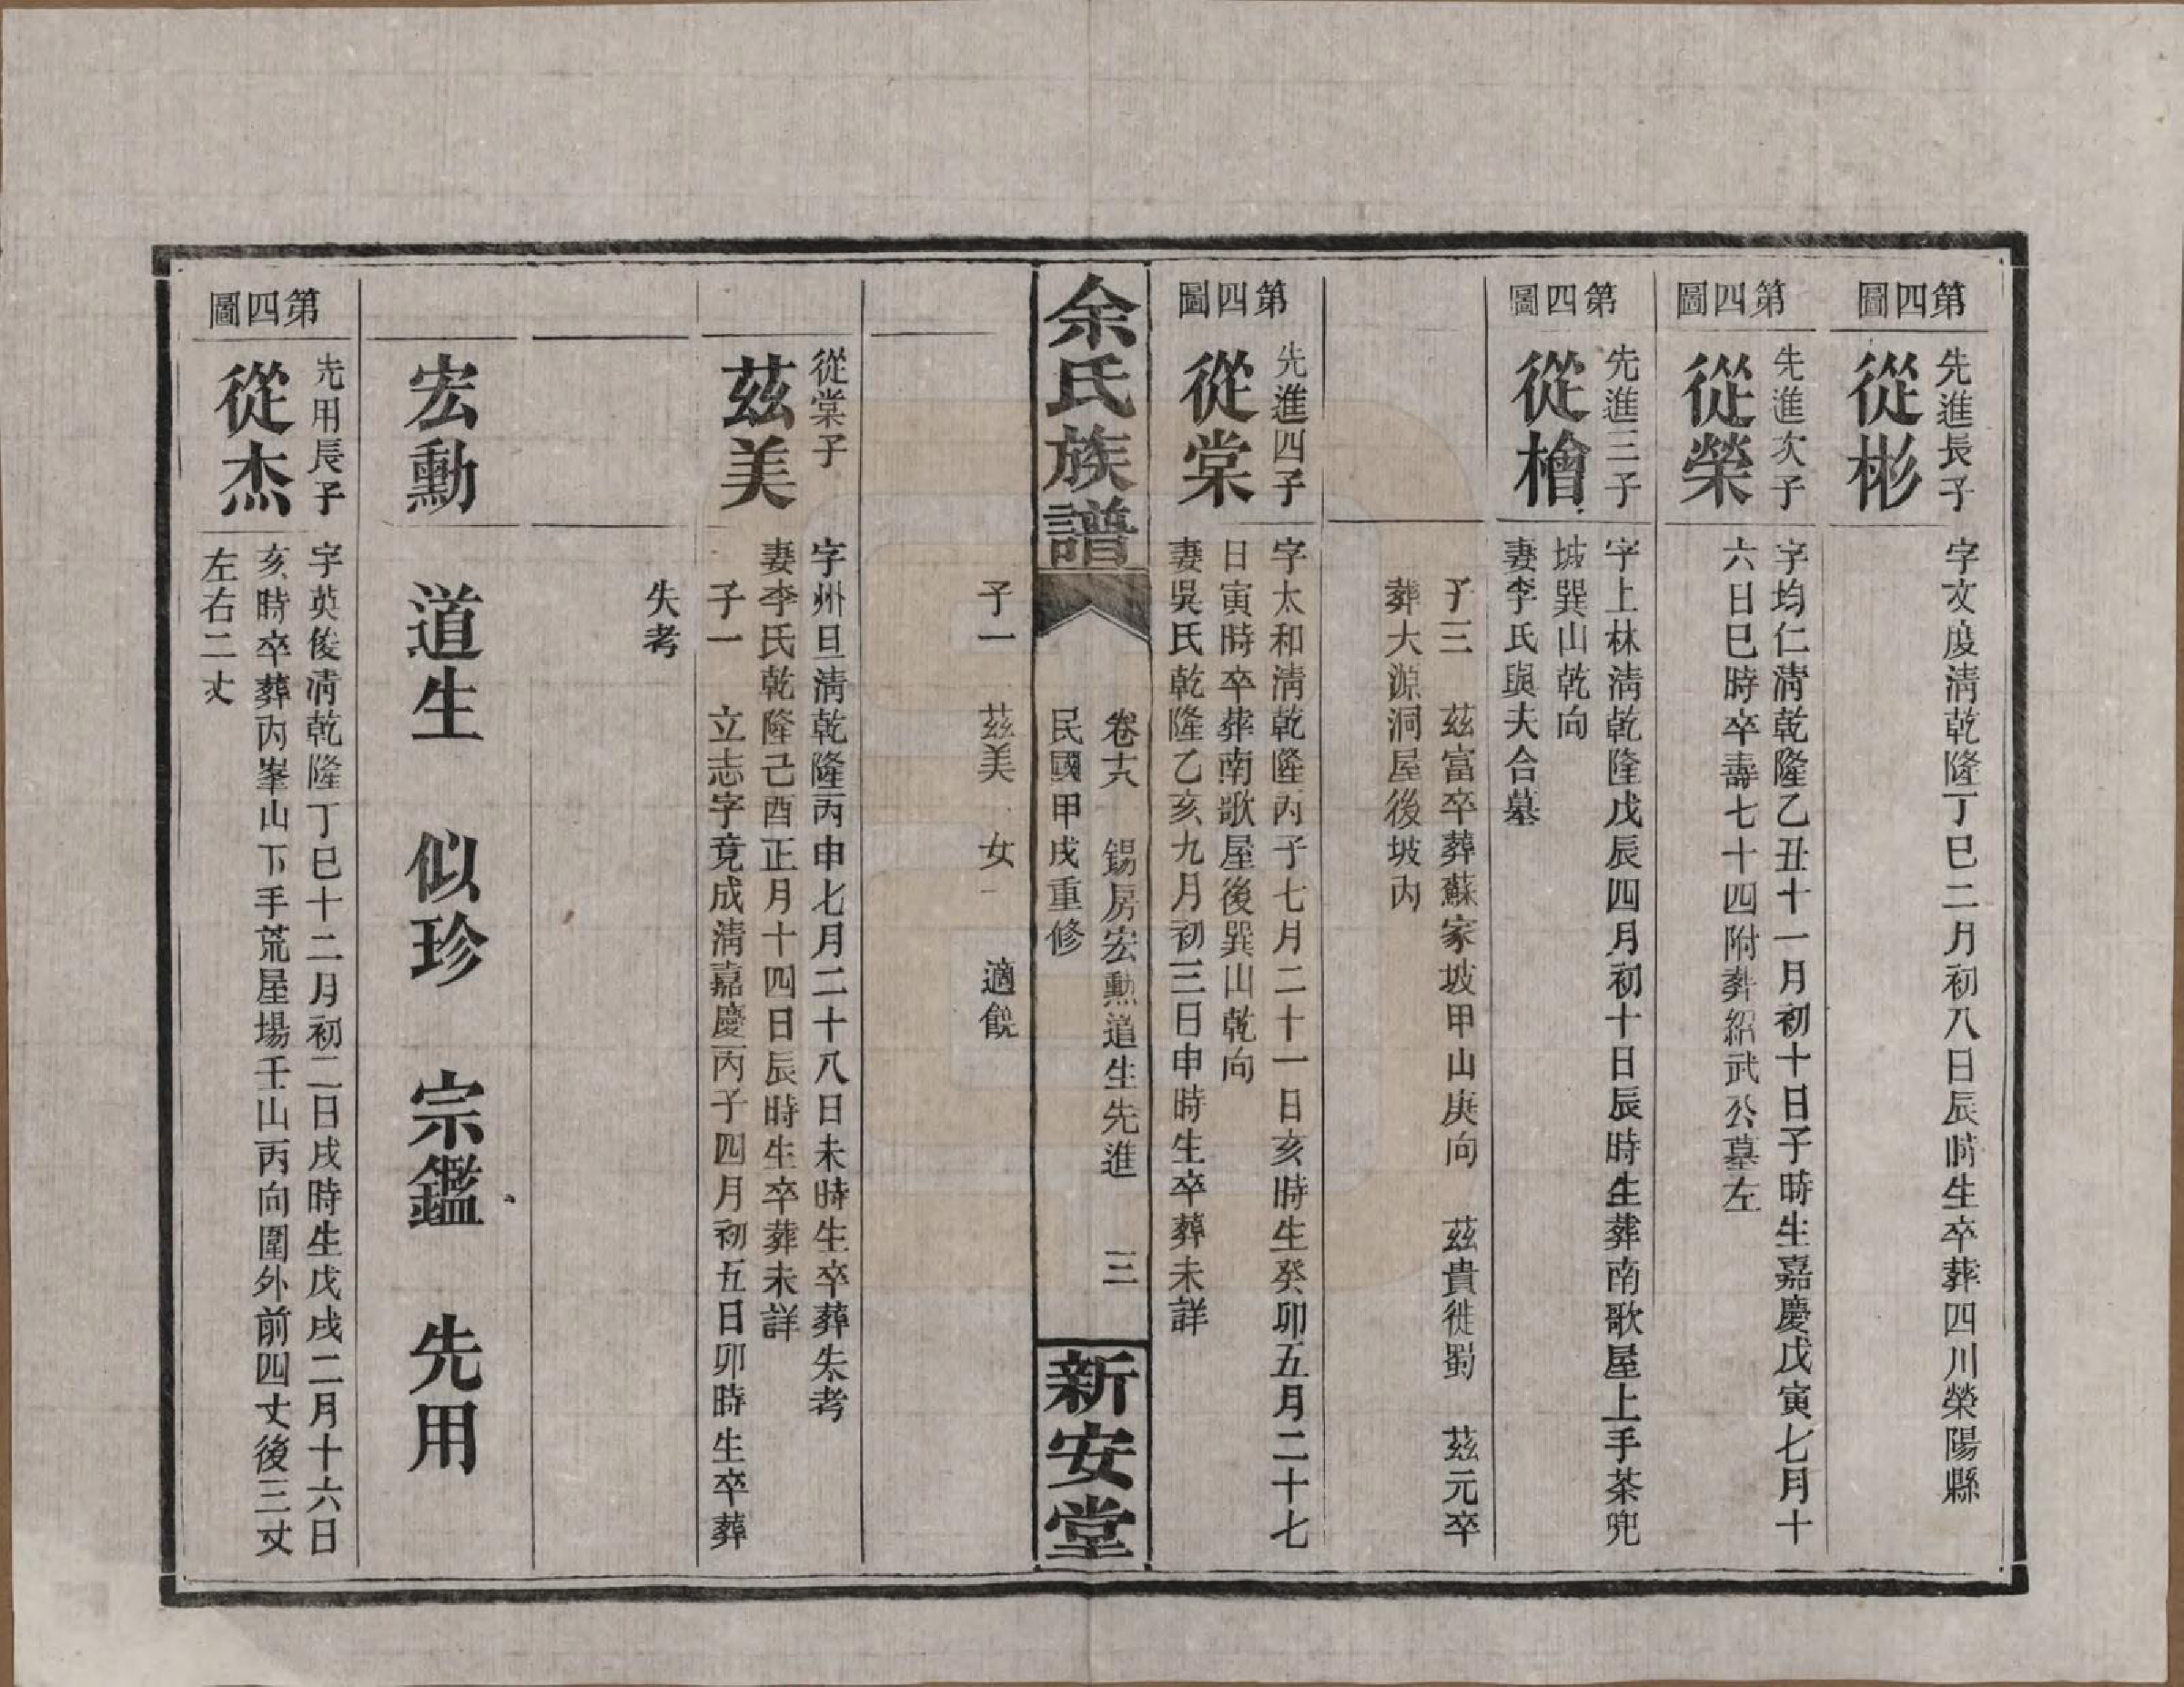 第四圖
先進長子
從彬
字文度淸乾隆丁巳二月初八日辰時生卒葬四川榮陽縣
第四圖
先進次子
從榮
字均仁淸乾隆乙丑十一月初十日子時生嘉慶戊寅七月十
六日巳時卒壽七十四附葬紹武公墓左
第四圖
先進三子
從檜
字上林淸乾隆戊辰四月初十日辰時生葬南歌屋上手茶兜
坡巽山乾向
妻李氏與夫合墓
子三 茲富卒葬蘇家坡甲山庚向 茲貴徙蜀 茲元卒
葬大源洞屋後坡內
第四圖
先進四子
從棠
字太和淸乾隆丙子七月二十一日亥時生癸卯五月二十七
日寅時卒葬南歌屋後巽山乾向
妻吳氏乾隆乙亥九月初三日申時生卒葬未詳
余氏族譜
卷十六 錫房宏勳道生先進 三
民國甲戌重修
新安堂
子一 茲美 女一 適饒
從棠子
茲美
字州旦淸乾隆丙申七月二十八日未時生卒葬失考
妻李氏乾隆己酉正月十四日辰時生卒葬未詳
子一 立志字竟成淸嘉慶丙子四月初五日卯時生卒葬
失考
宏勳 道生 似珍 宗鑑 先用
第四圖
先用長子
從杰
字英俊淸乾隆丁巳十二月初二日戌時生戊戌二月十六日
亥時卒葬丙峯山下手荒屋場壬山丙向圍外前四丈後三丈
左右二丈